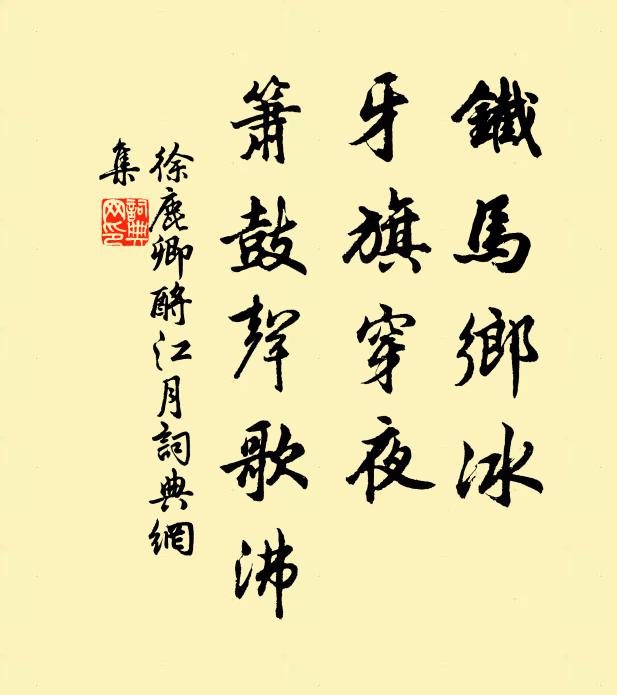 鐵馬鄉冰
牙旗穿夜
簫鼓聲歌沸
徐鹿卿酹江月詞典網
集
詞典
网印